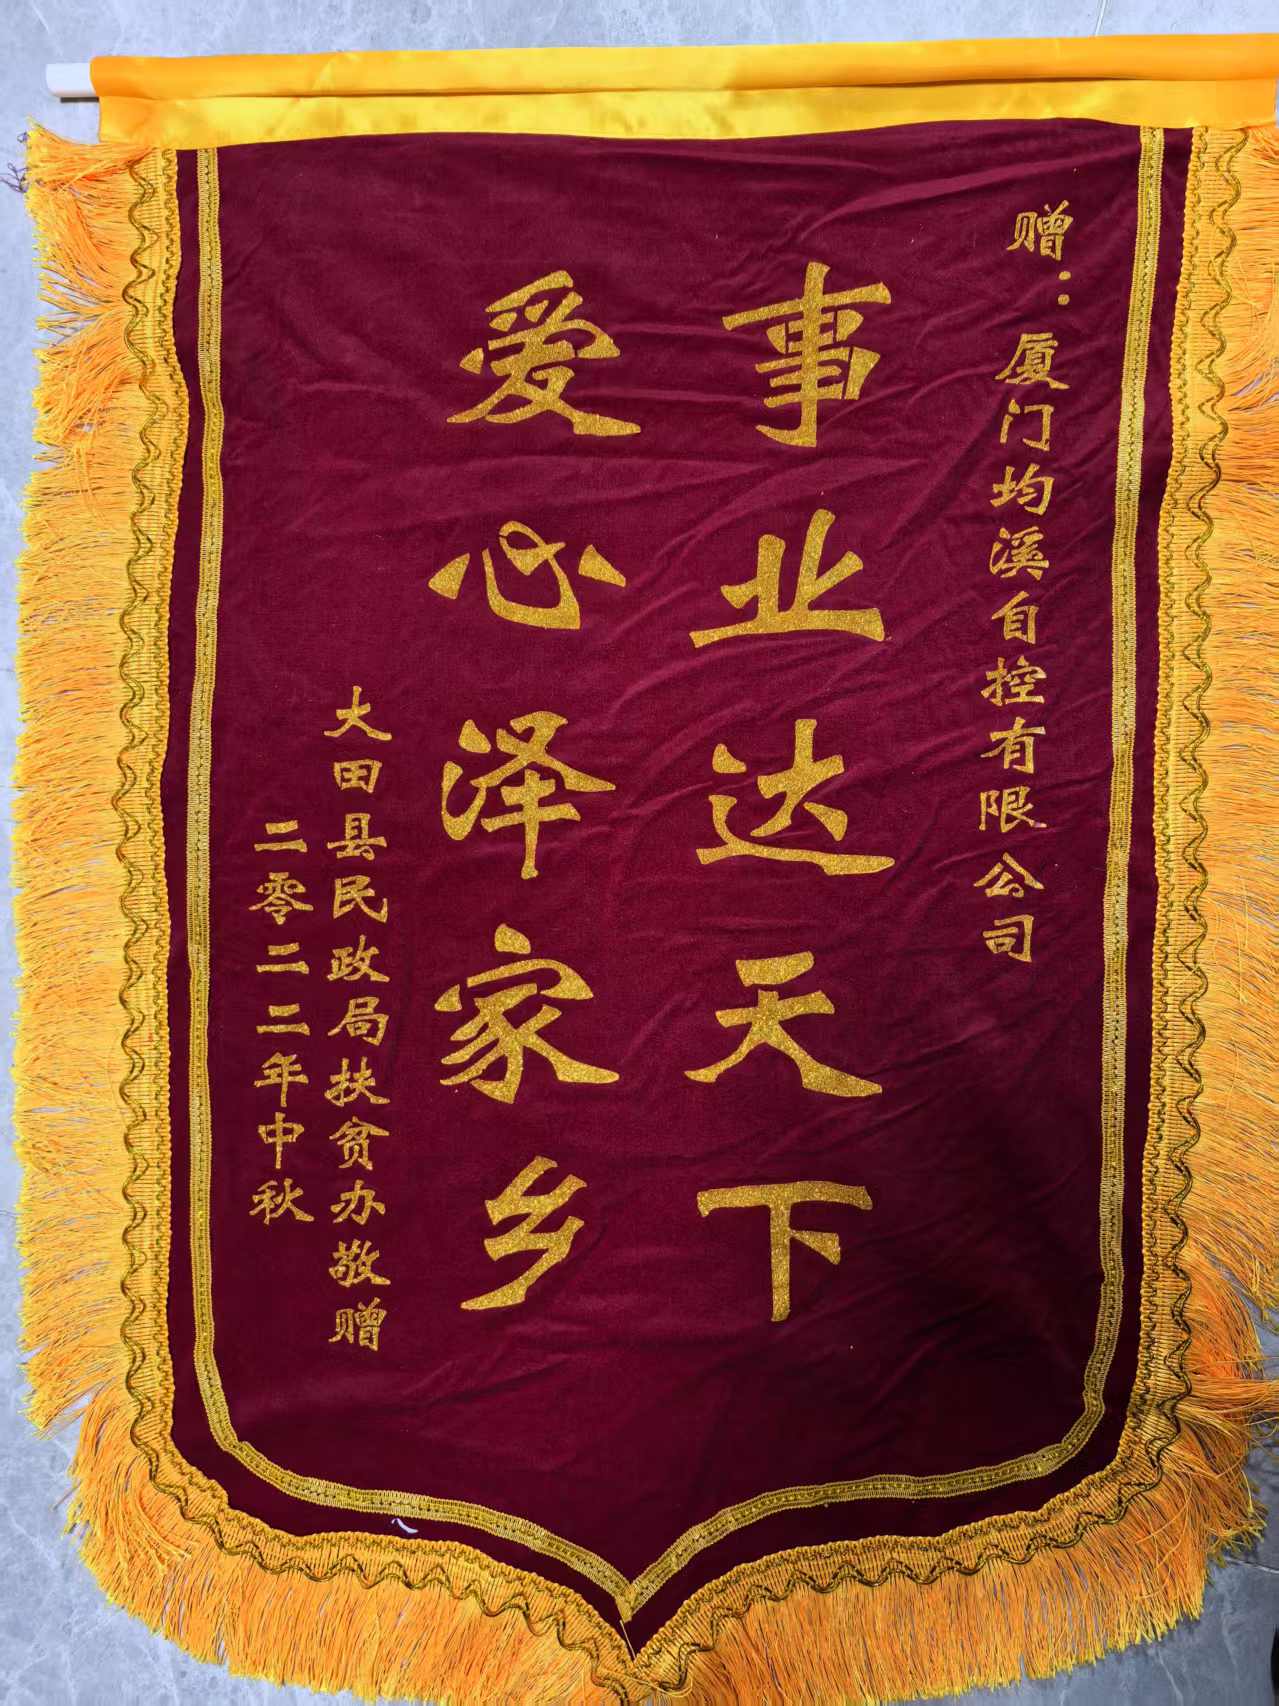 赠：厦门均溪自控有限公司
事业达天下
爱心泽家乡
大田县民政局扶贫办敬赠
二零二二年中秋